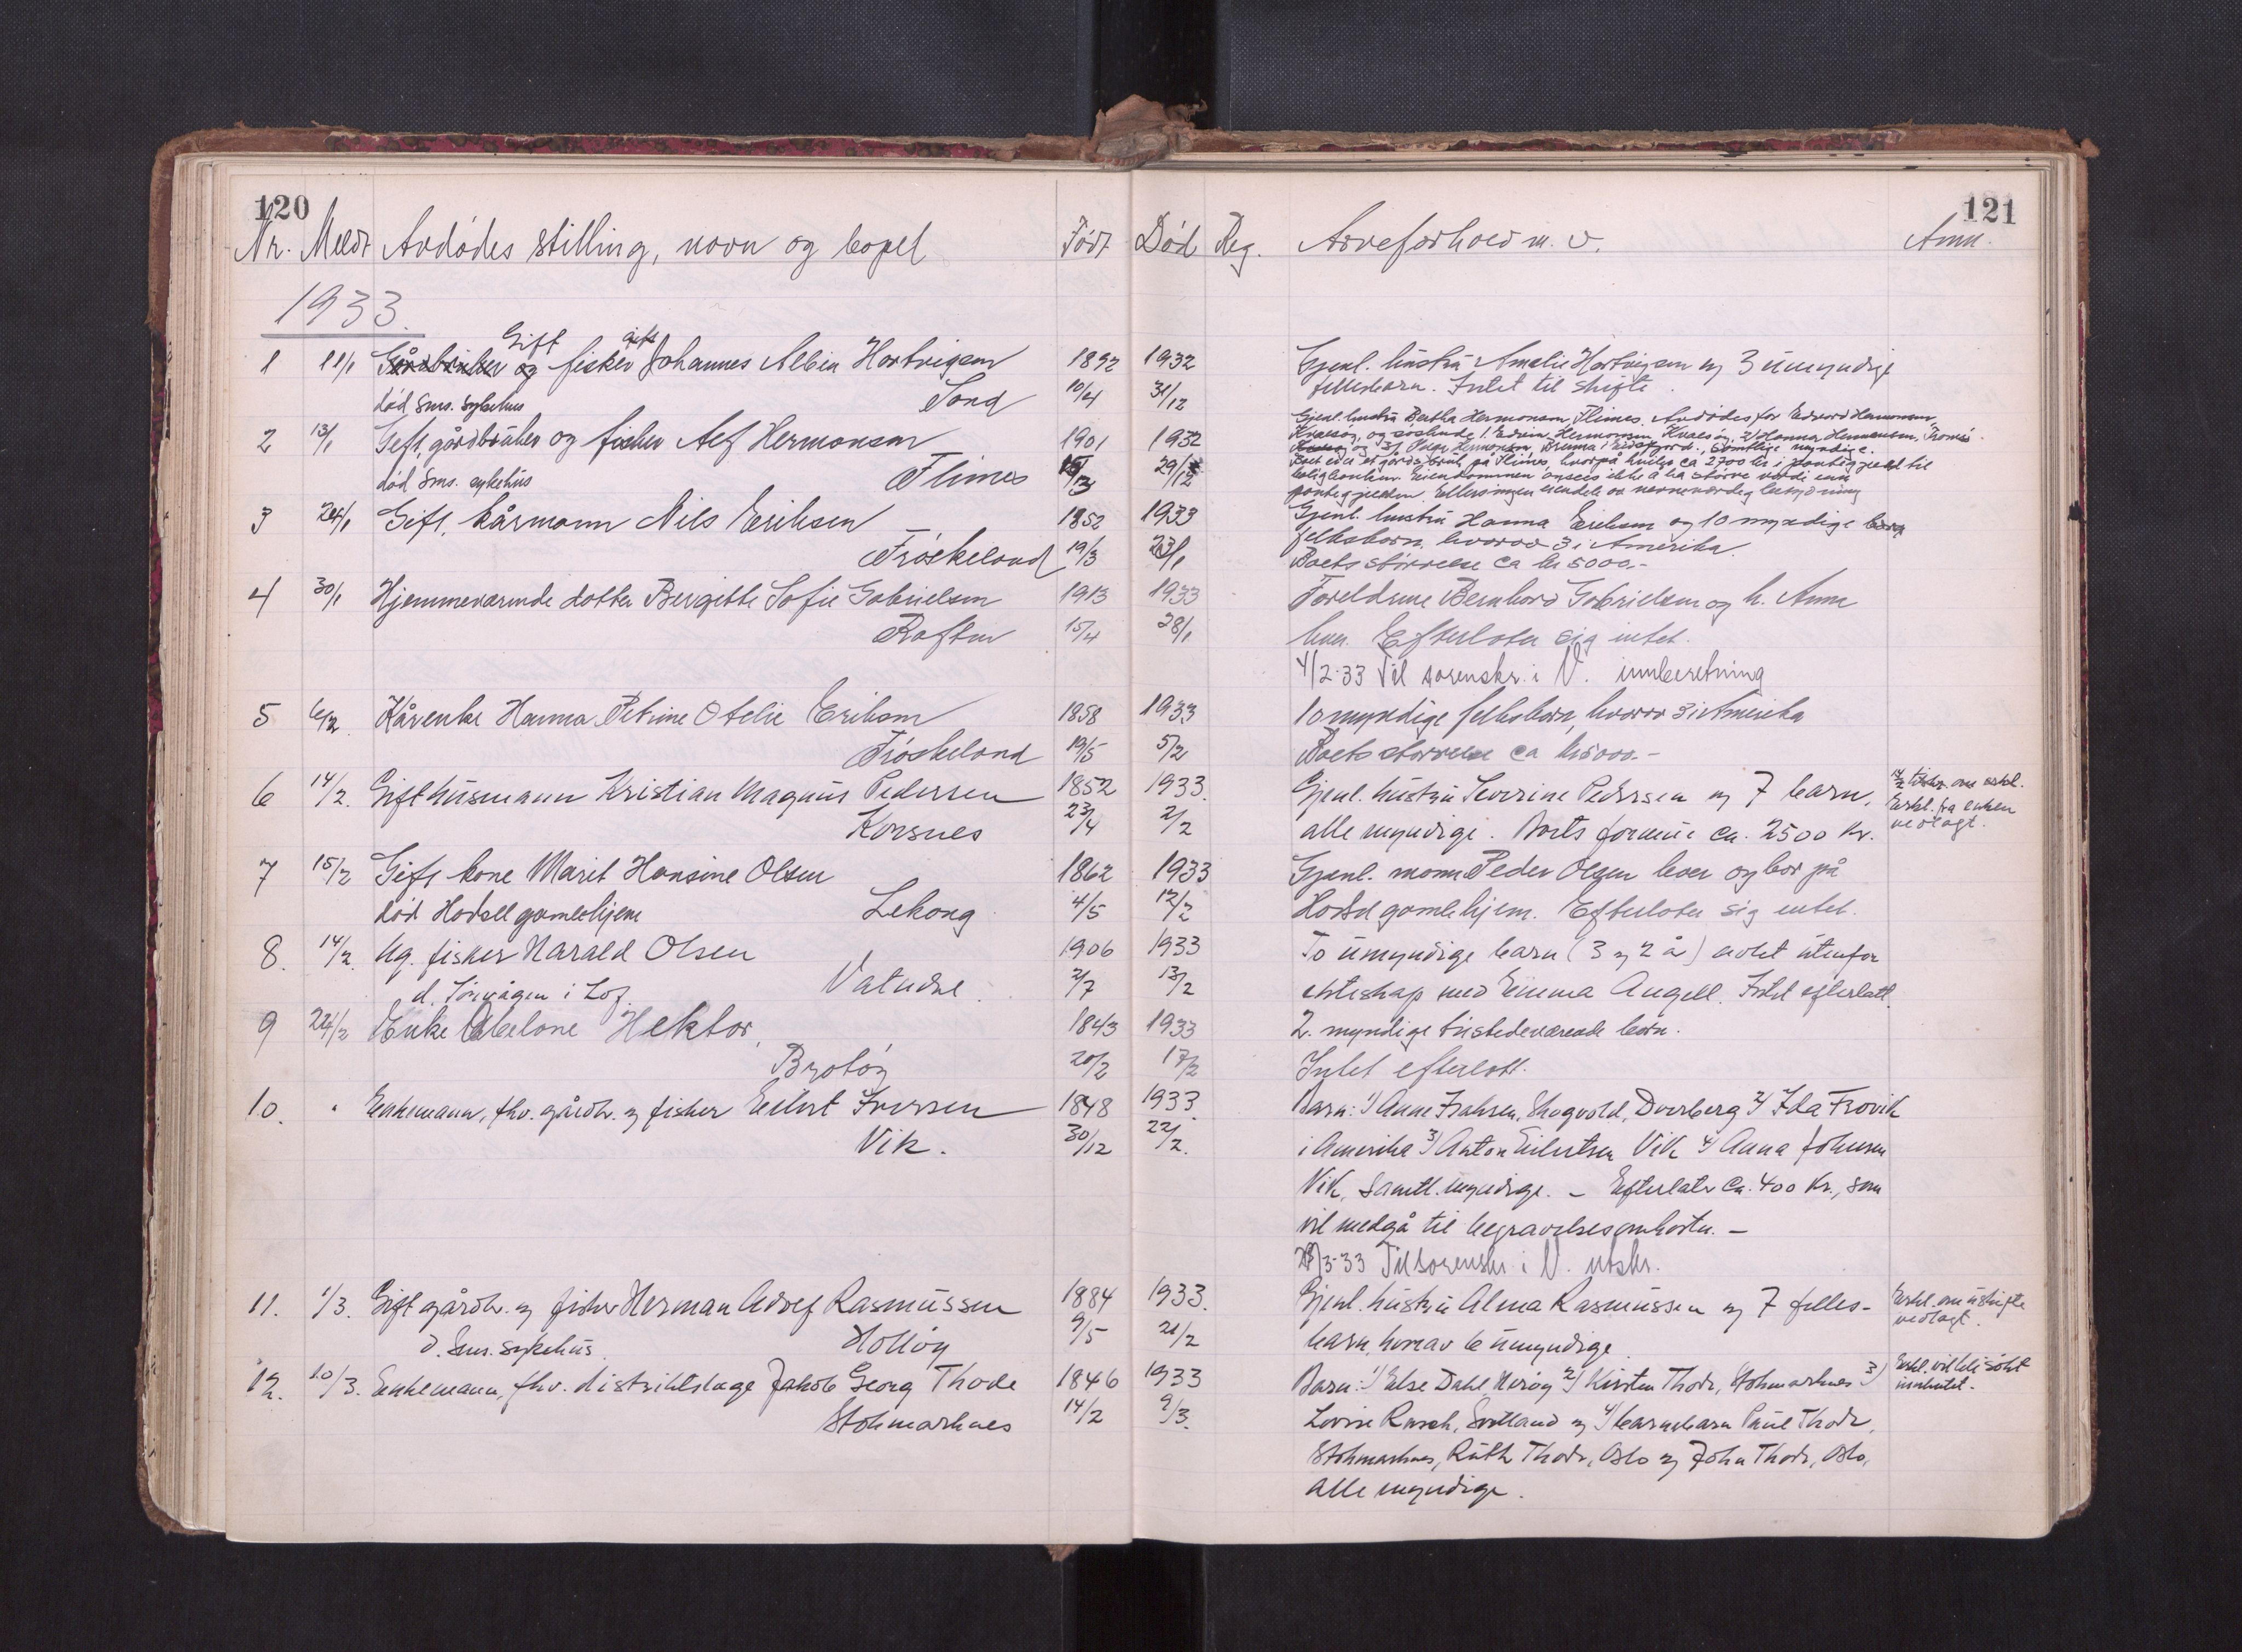 120
Nr. Meldt Avdødes stilling, navn og bopel Født Død Reg. Arveforhold m. v. Anm.
121
1933.
1 11/1 Gårdbruker og Gift fisker gift Johannes Albin Hartvigsen 1892 1932 Gjenl. hustru Amalie Hartvigsen og 3 umyndige
død Sms. sykehus Sand 10/4 31/12 fellesbarn. Intet til skifte.
2 13/1 Gift, gårdbruker og fisker Alf Hermansen 1901 1932
død Sms. sykehus Flimes 29/12
Gjenl. hustru Bertha Hermansen, Flimes. Avdødes far Edvard Hermansen,
Kvalsøy, og søskende 1. Edvin Hermansen Kvalsøy, 2/ Hanna Hermansen, Tromsø
og 3/ Hermansen, Eidsfjord., samtlige myndige.
Boet eier et gårdsbruk på Flimes, hvorpå hviler ca 2700 kr i pantegjeld til
Eiendommen ansees ikke å ha større verdi enn
pantegjelden. Ellers ingen eiendele av nevneverdig betydning
3 24/1 Gift, kårmann Nils Eriksen 1852 1933 Gjenl. hustru Hanna Eriksen og 10 myndige barn
Frøskeland 19/3 23/1 fellesbarn, hvorav 3 i Amerika.
Boets størrelse ca kr 5000.-
4 30/1 Hjemmeværende datter Bergitte Sofie Gabrielsen 1913 1933 Foreldrene Bernhard Gabrielsen og h. Anna
Raften 15/4 28/1 lever. Efterlater sig intet.
4/2-33 Til sorenskr. i V. innberetning
5 6/2 Kårenke Hanna Petrine Otelie Eriksen 1858 1933 10 myndige fellesbarn, hvorav 3 i Amerika
Frøskeland 19/5 5/2 Boets størrelse ca kr 5000.-
6 14/2. Gift husmann Kristian Magnus Pedersen 1852 1933. Gjenl. hustru Severine Pedersen og 7 barn,
Korsnes 23/4 2/2 alle myndige. Boets formue ca. 2500 kr.
om erkl.
Erkl. fra enken
vedlagt.
7 15/2 Gift kone Marit Hansine Olsen 1862 1933 Gjenl. mann Peder Olsen lever og bor på
død Hadsel gamlehjem Lekang 4/5 12/2 Hadsel gamlehjem. Efterlater sig intet.
8. 14/2. Ug. fisker Harald Olsen 1906 1933 To umyndige barn (3 og 2 år) avlet utenfor
d. Sørvågen i Lof. Vatndal. 2/7 13/2 ekteskap med Emma Angell. Intet efterlatt.
9 24/2 Enke Abelone Hektor, 1843 1933 2. myndige tilstedeværende barn.
Brotøy 20/2 17/2 Intet efterlatt.
10. " Enkemann, fhv. gårdbr. og fisker Eilert Iversen 1848 1933 Barn: 1) Anne Isaksen, Skogvold, Dverberg 2/ Ida Frovik
Vik. 30/12 22/2. i Amerika 3/ Anton Eilertsen Vik 4/ Anna Johnsen
Vik, samtl. myndige. - Efterlater ca. 400 kr., som
vil medgå til begravelsesomkostn. -
/3-33 Til sorenskr. i V. utskr.
11. 1/3. Gift gårdbr. og fisker Herman Adolf Rasmussen 1884 1933. Gjenl. hustru Alma Rasmussen og 7 felles-
d. Sms. sykehus. Holløy 9/5 21/2 barn, hvorav 6 umyndige.
Erkl. om uskifte
vedlagt.
12. 10/3. Enkemann, fhv. distriktslæge Jakob Georg Thode 1846 1933 Barn: 1) Else Dahl, Herøy 2/ Kirsten Thode, Stokmarknes 3)
Stokmarknes 14/2 9/3. Lovise Rasch, Sortland og 4/ barnebarn Paul Thode,
Stokmarknes, Ruth Thode, Oslo og John Thode, Oslo,
alle myndige.
Erkl. vil bli søkt
innhentet.